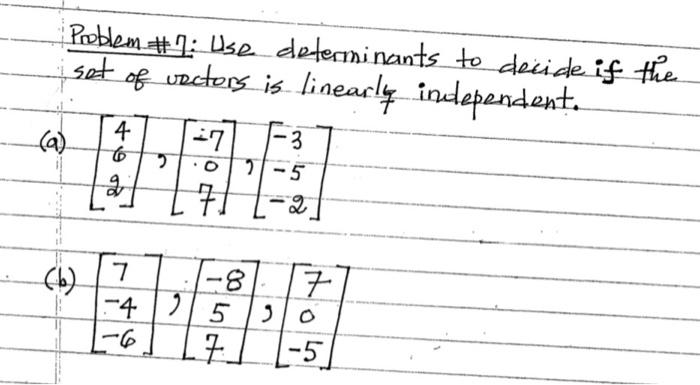 Problem #7: Use determinants to decide if the
set of vectors is linearly independent.
(a) [4 6 2], [-7 0 7], [-3 -5 -2]
(b) [7 -4 -6], [-8 5 7], [7 0 -5]